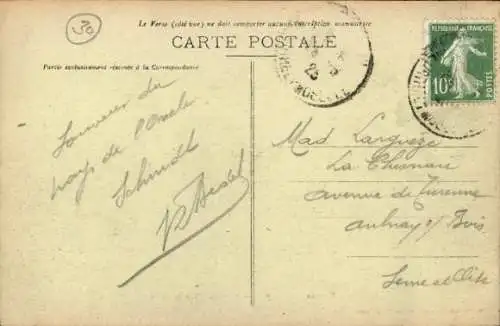 30
Le Verso (côté vue) ne doit comporter aucune inscription manuscrite
CARTE POSTALE
Partie exclusivement réservée à la Correspondance
REPUBLIQUE FRANÇAISE
10
POSTES
MOSELLE
Souvenir du
pays de l'Oncle
Schmidt
Mad Largueze
La Chesnaie
avenue de Turenne
Aulnay s/ Bois
Seine et Oise